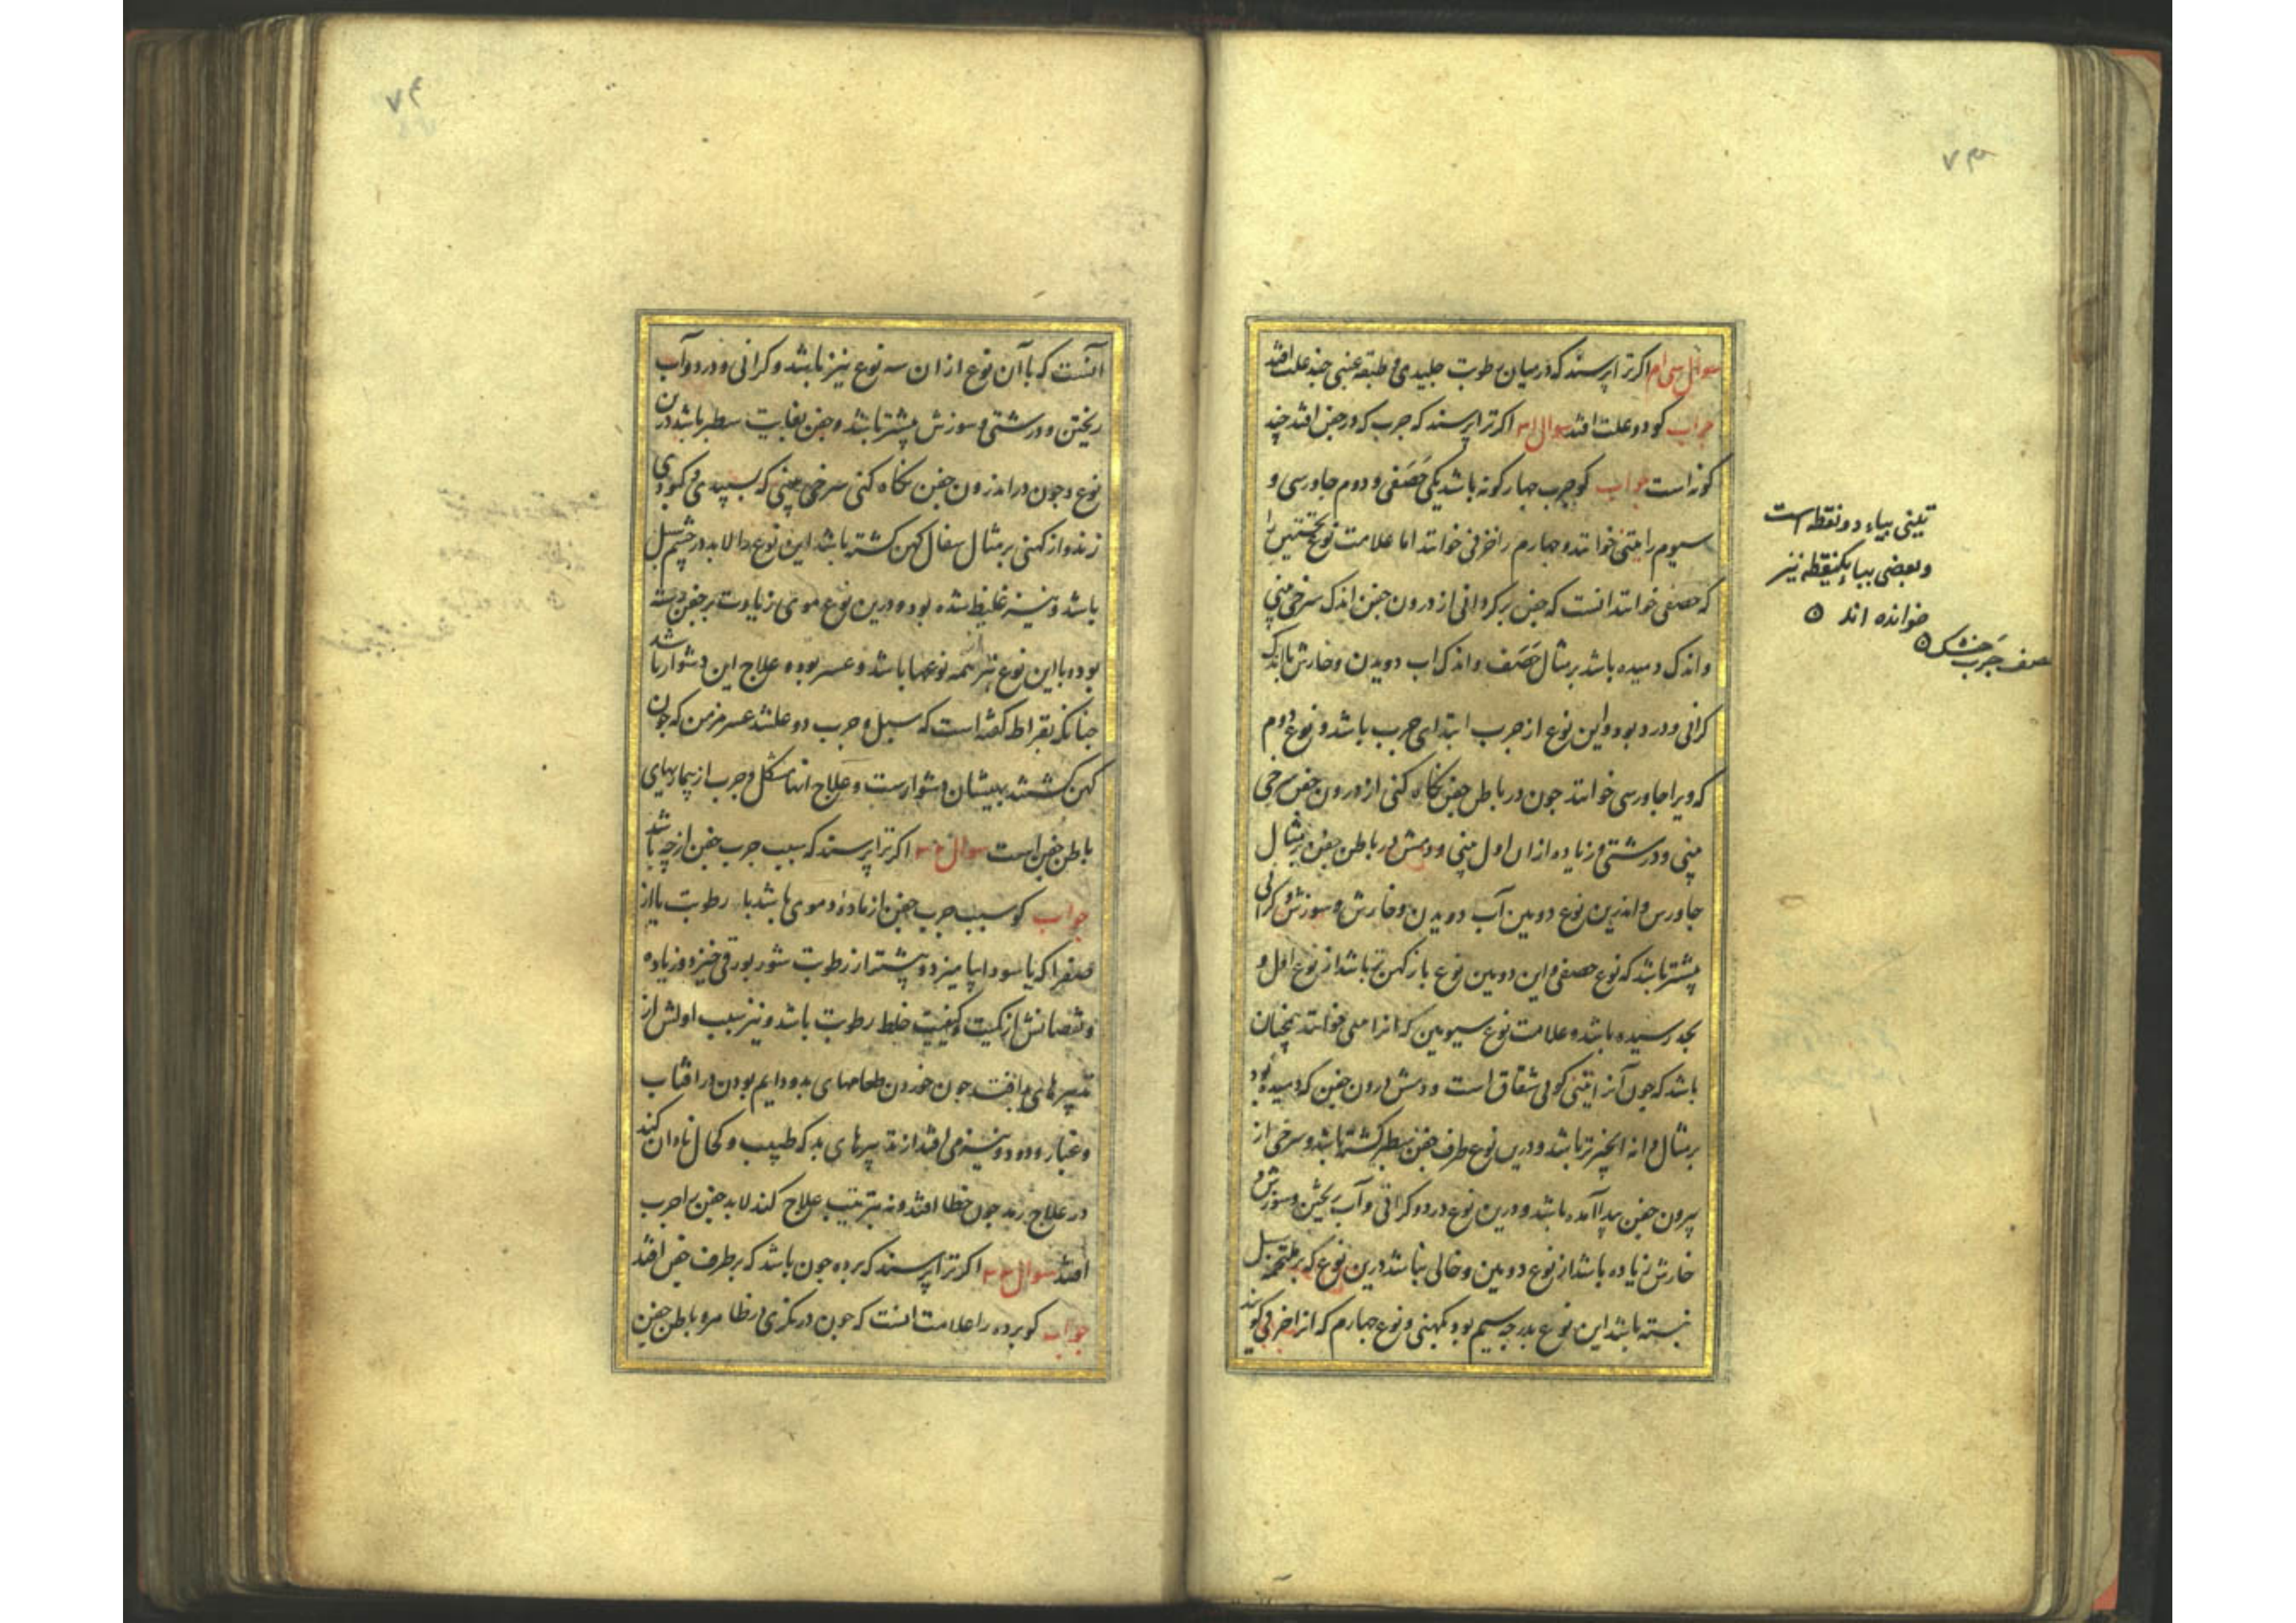 ۷۳
سوال سی ام اکر ترا پرسند که در میان رطوبت جلیدی و طبقه عنبی چند علت افتد
جواب کو دو علت افتد سوال ۳۱ اکر ترا پرسند که جرب که در جفن افتد چند
کونه است جواب کو جرب جهار کونه باشد یکی حَصَفی و دوم جاورسی و
سیوم را تینی خوانند و جهارم را خزفی خوانند اما علامت نوع نخستین را
که حصفی خوانند آنست که جفن برکردانی از درون جفن اندک سرخی بینی
و اندک دمیده باشد بر مثال حَصَف و اندک آب دویدن و خارش با اندک
کرانی و درد بود و این نوع از جرب ابتدای جرب باشد و نوع دوم
که ویرا جاورسی خوانند جون در باطن جفن نکاه کنی از درون جفن سرخی
بینی و درشتی و زیاده از ان اول بینی و دمش در باطن جفن بر مثال
جاورس و اندرین نوع دومین آب دویدن و خارش و سوزش و کرانی
بیشتر باشد که نوع حصفی و این دومین نوع باز کهن تر باشد از نوع اول و
بحد رسیده باشد و علامت نوع سیومین که انرا خوانند همچنان
باشد که جون آنرا بینی کوئی شقاق است و دمش درون جفن که دمیده بود
بر مثال دانه انجیر تر باشد و درین نوع طرف جفن سطبر کشته باشد و سرخی از
بیرون جفن پیدا آمده باشد و درین نوع درد و کرانی و آب ریختن و سوزش و
خارش زیاده باشد از نوع دومین و خالی نباشد درین نوع که بر ملتحمه سبل
نبسته باشد این نوع بدرجه سیم بود بکهنی و نوع جهارم که انرا خزفی کویند
تینی بیاء دو نقطه است
و بعضی ببا یکنقطه نیز
خوانده اند
حصف جَرَب خشک
۷۴
آنست که با آن نوع از ان سه نوع نیز باشد و کرانی و درد و آب
ریختن و درشتی و سوزش بیشتر باشد و جفن بغایت سطبر باشد درین
نوع و جون در اندرون جفن نکاه کنی سرخی بینی که بسپیدی و کبودی
زند و از کهنی بر مثال سفال کهن کشته باشد این نوع را لابد در چشم سبل
باشد و نیز غلیظ شده بود و درین نوع موی زیادت بر جفن رسته
بود و با این نوع نیز همه نوعها باشد و عسر بود و علاج این دشوار باشد
جنانکه بقراط کفته است که سبل و جرب دو علتند عسر مزمن که جون
کهن کشتند ببیشان دشوارست و علاج انها مشکل و جرب از بیماریهای
باطن جفن است سوال ۳۲ اکر ترا پرسند که سبب جرب جفن از چه باشد
جواب کو سبب جرب جفن از ماده دموی باشد با رطوبت یا از
صفرا که با سودا بیامیزد و بیشتر از رطوبت شور بورقی خیزد و زیاده
و نقصانش از کمیت و کیفیت خلط رطوبت باشد و نیز سبب اولش از
تدبیرهای بد افتد جون خوردن طعامهای بد و دایم بودن در افتاب
و غبار و دود و نیز می افتد از تدبیرهای بد که طبیب و کحال نادان کند
در علاج رمد جون خطا افتد و نه بترتیب علاج کند لابد جفن را جرب
افتد سوال ۳۳ اکر ترا پرسند که برده جون باشد که بر طرف جفن افتد
جواب کو برده را علامت آنست که جون در نکری در ظاهر و باطن جفن